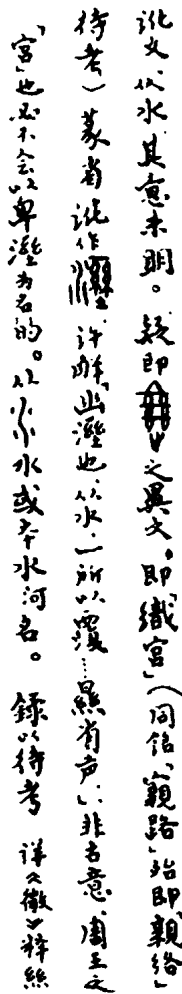 訛文，从水，其意未明。疑即之異文，即「織宮」（同铭「窺路」殆即「親络」
待考）篆省訛作濕，许解「幽溼也，从水，一所以覆…㬎有声」，非古意，周王之
「宮」也必不会以卑溼为名的。从水或本水河名。録以待考 详〈徵〉释絲